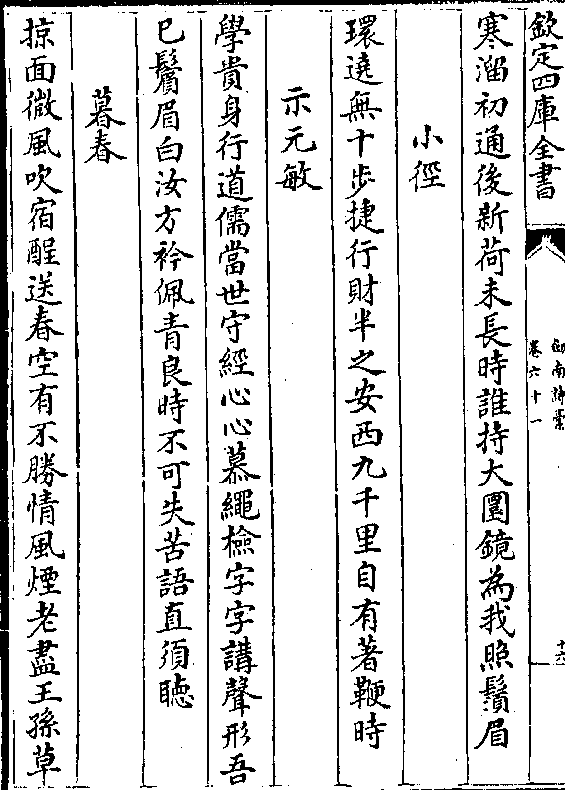 欽定四庫全書
劍南詩稾
卷六十一
十六
寒溜初通後新荷未長時誰持大圎鏡為我照鬚眉
小徑
環遶無十步捷行財半之安西九千里自有著鞭時
示元敏
學貴身行道儒當世守經心心慕繩檢字字講聲形吾
已鬚眉白汝方衿佩青良時不可失苦語直須聴
暮春
掠面微風吹宿酲送春空有不勝情風煙老盡王孫草